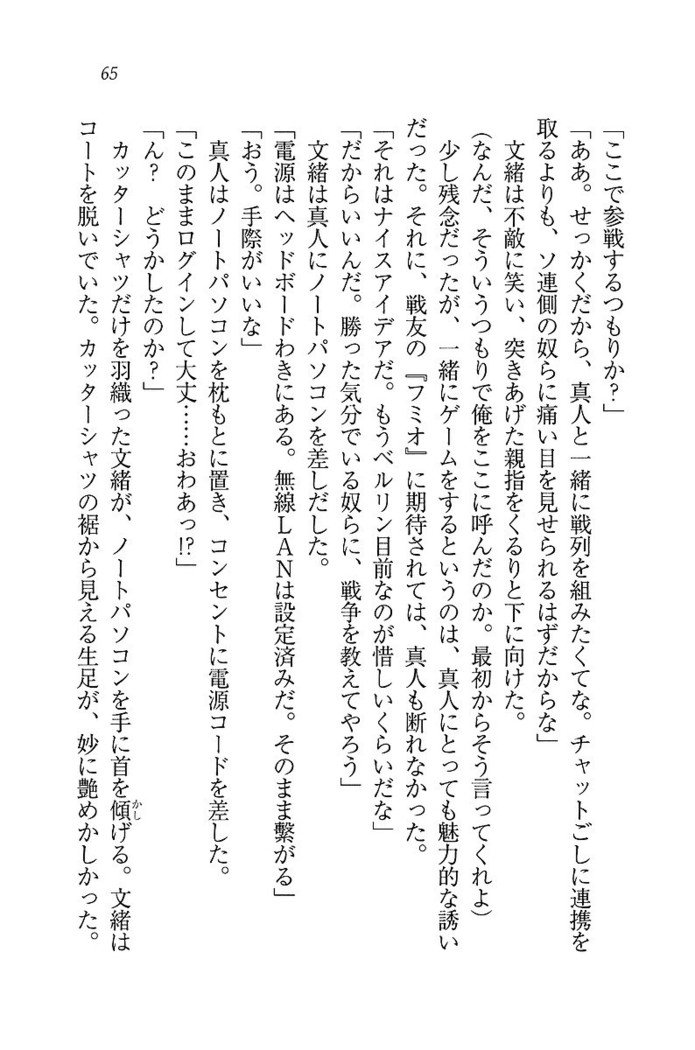 65
「ここで参戦するつもりか？」
「ああ。せっかくだから、真人と一緒に戦列を組みたくてな。チャットごしに連携を
取るよりも、ソ連側の奴らに痛い目を見せられるはずだからな」
文緒は不敵に笑い、突きあげた親指をくるりと下に向けた。
(なんだ、そういうつもりで俺をここに呼んだのか。最初からそう言ってくれよ)
少し残念だったが、一緒にゲームをするというのは、真人にとっても魅力的な誘い
だった。それに、戦友の『フミオ』に期待されては、真人も断れなかった。
「それはナイスアイデアだ。もうベルリン目前なのが惜しいくらいだな」
「だからいいんだ。勝った気分でいる奴らに、戦争を教えてやろう」
文緒は真人にノートパソコンを差しだした。
「電源はヘッドボードわきにある。無線LANは設定済みだ。そのまま繋がる」
「おう。手際がいいな」
真人はノートパソコンを枕もとに置き、コンセントに電源コードを差した。
「このままログインして大丈……おわあっ!?」
「ん？　どうかしたのか？」
カッターシャツだけを羽織った文緒が、ノートパソコンを手に首を傾かしげる。文緒は
コートを脱いでいた。カッターシャツの裾から見える生足が、妙に艶めかしかった。